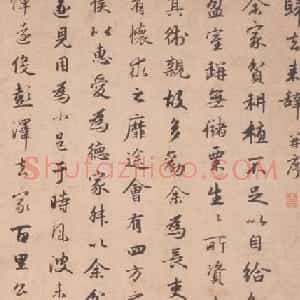 歸去來辭并序
余家貧耕植不足以自給
盈室缾無儲粟生生所資
其術親故多勸余為長吏
有懷求之靡途會有四方
侯以惠愛為德家叔以余
遂見用為小邑于時風波未
憚遠役彭澤去家百里公
Shufaziliao.com